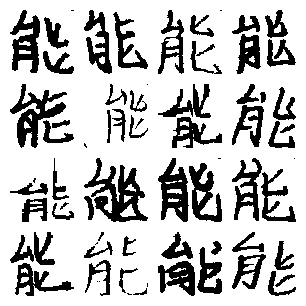 能能能能
能能能能
能能能能
能能能能